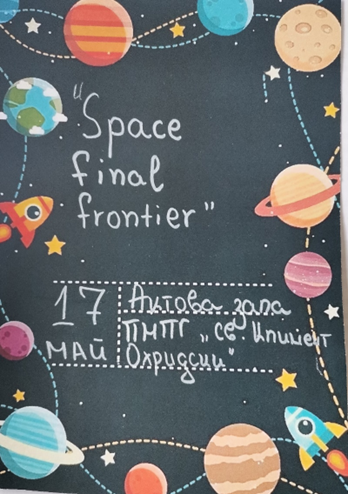 "Space
final
frontier"
17
МАЙ
Актова зала
ПМПГ „Св. Климент
Охридски"